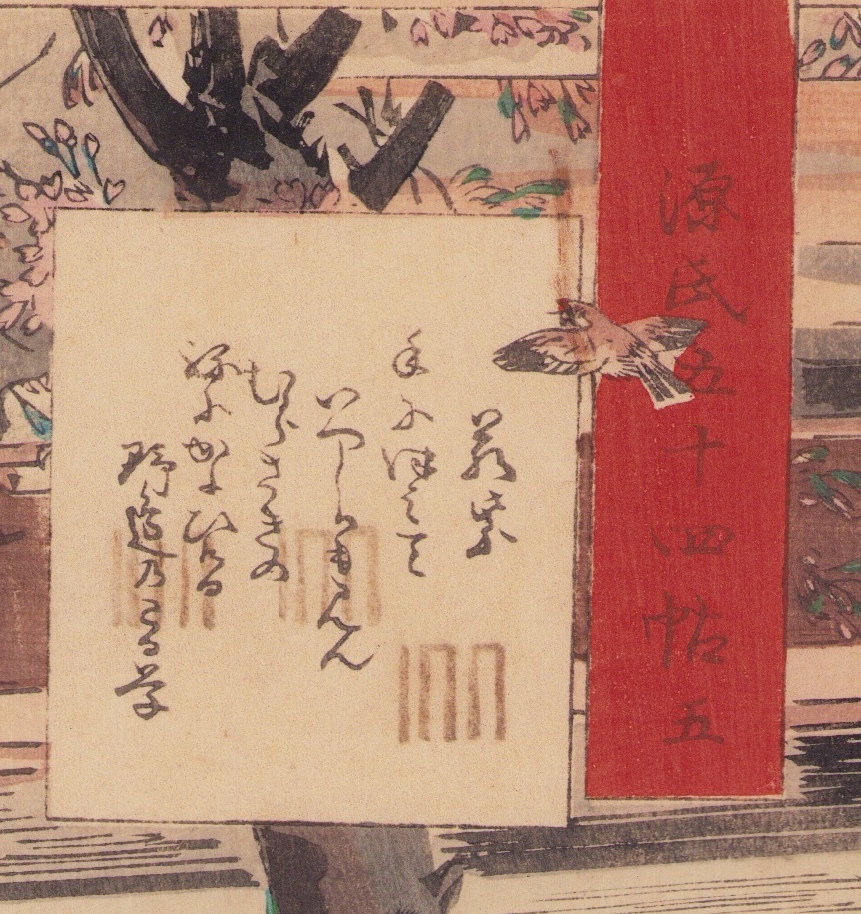 源氏五十四帖 五
若紫
手につみて
いつしかも見ん
むらさきの
ねにかよひける
野邊の若草